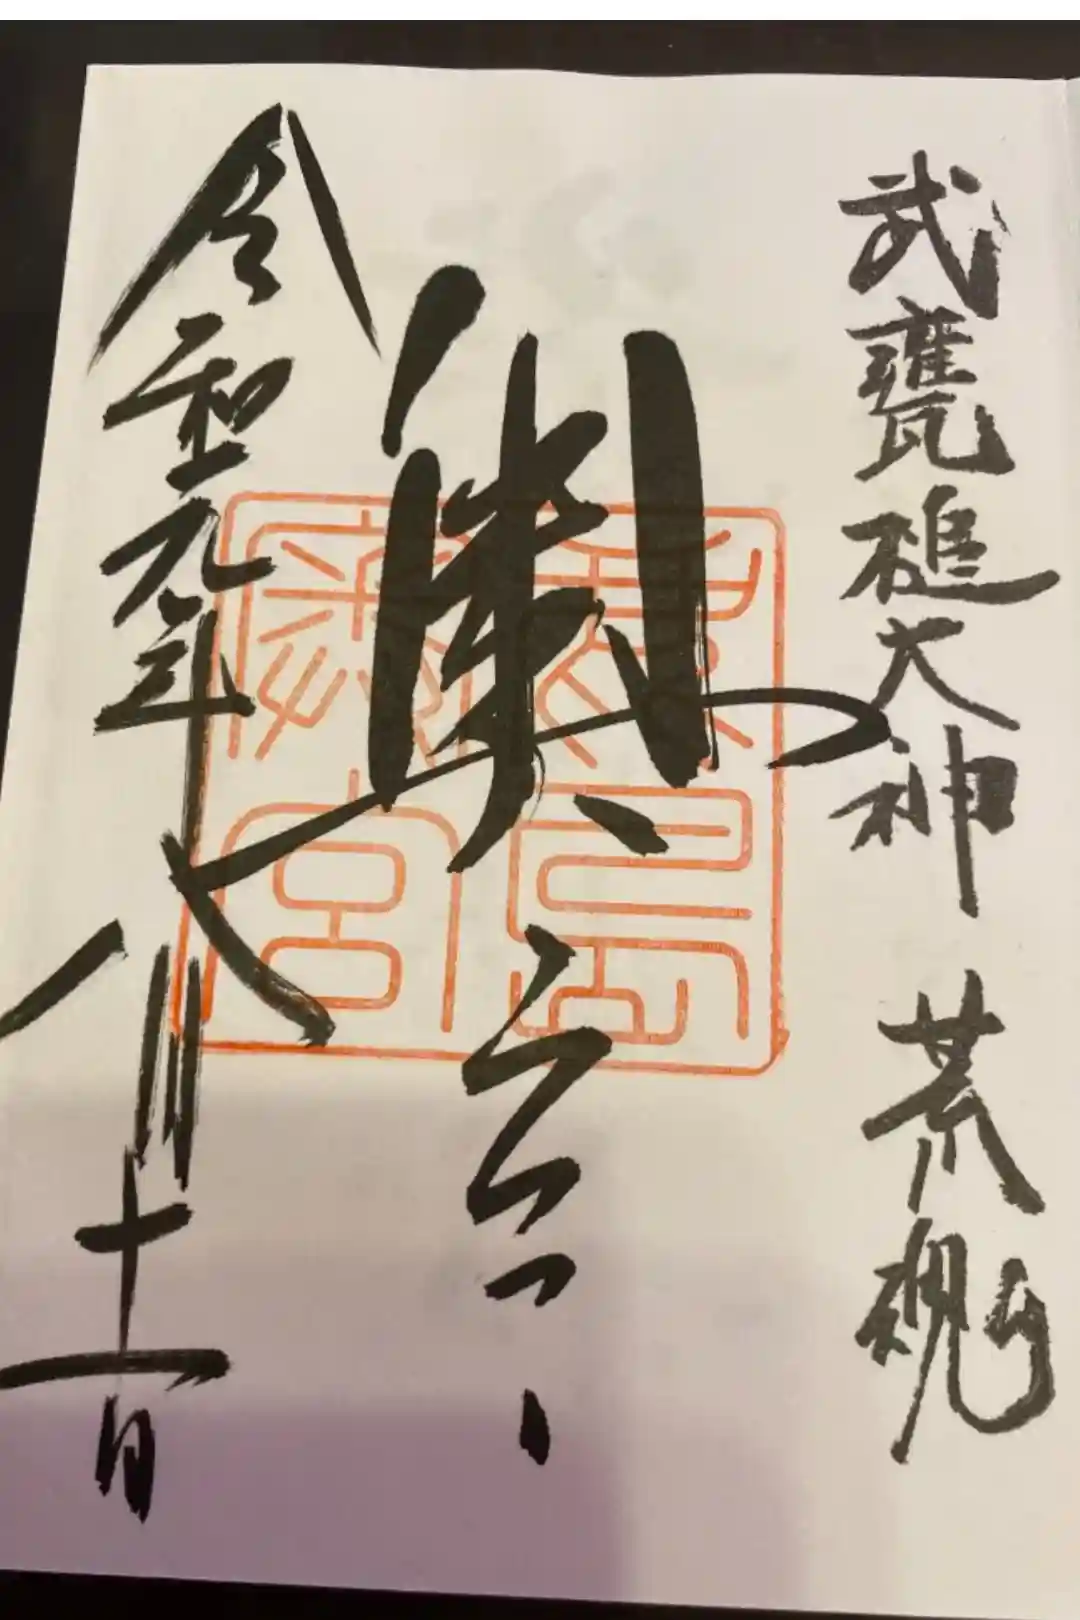 武甕槌大神 荒魂
奥宮
令和元年八月十一日